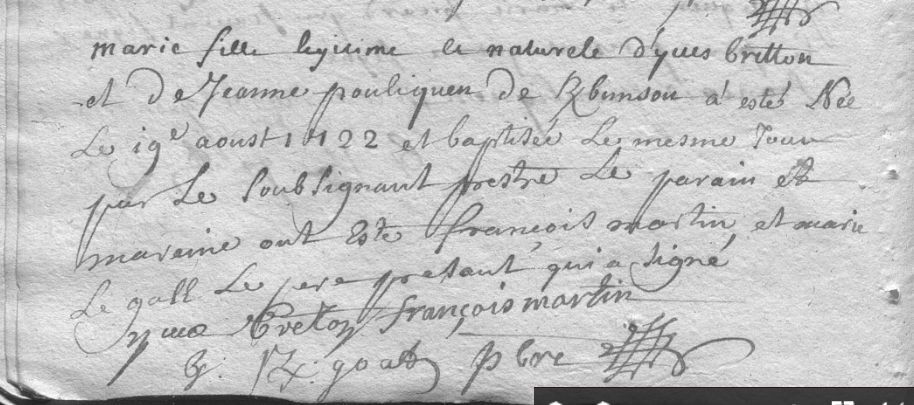 marie fille legitime et naturele d'yves britton
et de Jeanne pouliquen de Kbunsou a esté Née
Le 19e aoust 1722 et baptisée Le mesme Jour
par Le soubsignant prestre Le parain et
maraine ont Esté françois martin et marie
Le gall Le pere present qui a signé
yves Breton françois martin
goat pbre